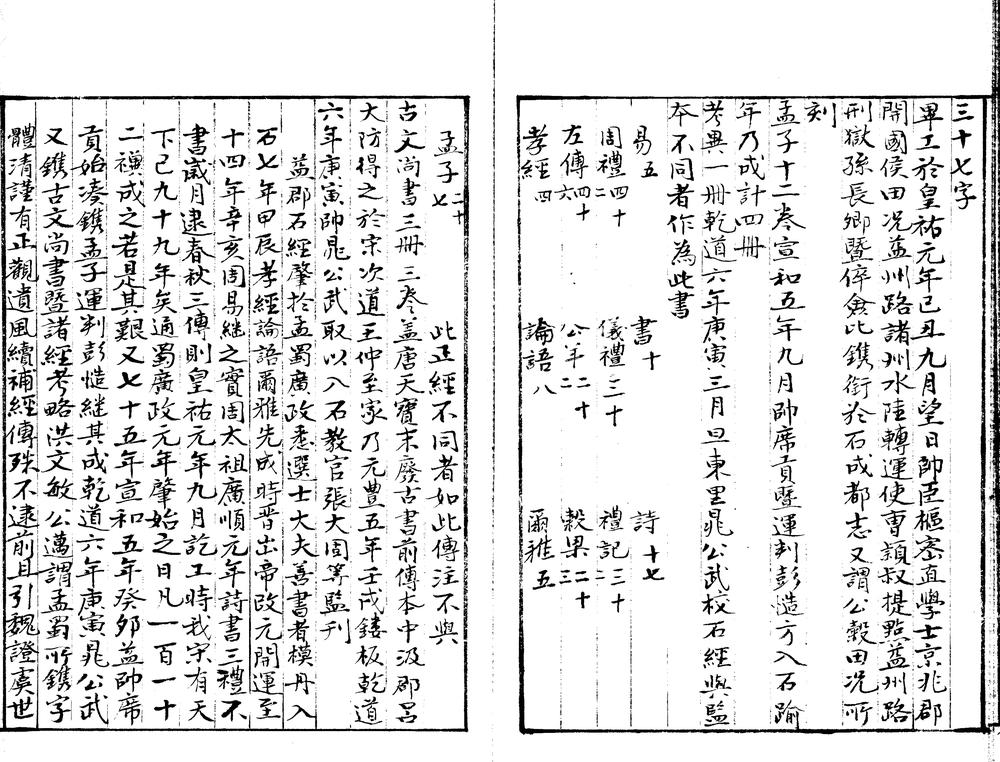 三十七字
畢工於皇祐元年己丑九月望日帥臣樞密直學士京兆郡
開國侯田况益州路諸州水陸轉運使曹頴叔提點益州路
刑獄孫長卿暨倅僉此鐫銜於石成都志又謂公穀田况所
刻
孟子十二卷宣和五年九月帥席貢暨運判彭慥方入石踰
年乃成計四冊
考異一冊乾道六年庚寅三月旦東里晁公武校石經與監
本不同者作為此書
易五 書十 詩十七
周禮四十二 儀禮三十 禮記三十二
左傳四十六 公羊二十二 穀梁二十三
孝經四 論語八 爾雅五
孟子二十七 此正經不同者如此傳注不與
古文尚書三冊三卷盖唐天寶末廢古書前傳本中汲郡呂
大防得之於宋次道王仲至家乃元豊五年壬戌鏤板乾道
六年庚寅帥晁公武取以入石教官張大固等監刊
益郡石經肇於孟蜀廣政悉選士大夫善書者模丹入
石七年甲辰孝經論語爾雅先成時晋出帝改元開運至
十四年辛亥周易継之實周太祖廣順元年詩書三禮不
書歲月逮春秋三傳則皇祐元年九月訖工時我宋有天
下已九十九年矣通蜀廣政元年肇始之日凡一百一十
二禩成之若是其艱又七十五年宣和五年癸夘益帥席
貢始凑鐫孟子運判彭慥継其成乾道六年庚寅晁公武
又鐫古文尚書暨諸經考略洪文敏公邁謂孟蜀所鐫字
體清謹有正觀遺風續補經傳殊不逮前且引魏證虞世